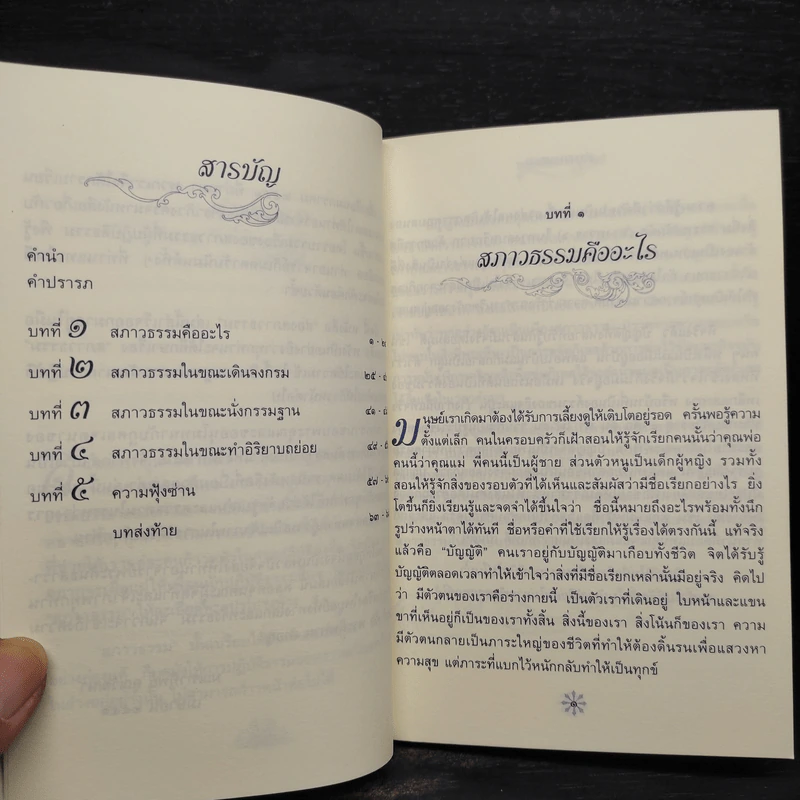 สารบัญ
คำนำ
คำปรารภ
บทที่ ๑ สภาวธรรมคืออะไร ๑ -
บทที่ ๒ สภาวธรรมในขณะเดินจงกรม ๒๕ -
บทที่ ๓ สภาวธรรมในขณะนั่งกรรมฐาน ๔๑ -
บทที่ ๔ สภาวธรรมในขณะทำอิริยาบถย่อย ๔๙ -
บทที่ ๕ ความฟุ้งซ่าน ๕๗ -
บทส่งท้าย ๖๓ -
บทที่ ๑
สภาวธรรมคืออะไร
มนุษย์เราเกิดมาต้องได้รับการเลี้ยงดูให้เติบโตอยู่รอด ครั้นพอรู้ความ
ตั้งแต่เล็ก คนในครอบครัวก็เฝ้าสอนให้รู้จักเรียกคนนั้นว่าคุณพ่อ
คนนี้ว่าคุณแม่ พี่คนนี้เป็นผู้ชาย ส่วนตัวหนูเป็นเด็กผู้หญิง รวมทั้ง
สอนให้รู้จักสิ่งของรอบตัวที่ได้เห็นและสัมผัสว่ามีชื่อเรียกอย่างไร ยิ่ง
โตขึ้นก็ยิ่งเรียนรู้และจดจำได้ขึ้นใจว่า ชื่อนี้หมายถึงอะไรพร้อมทั้งนึก
รูปร่างหน้าตาได้ทันที ชื่อหรือคำที่ใช้เรียกให้รู้เรื่องได้ตรงกันนี้ แท้จริง
แล้วคือ “บัญญัติ” คนเราอยู่กับบัญญัติมาเกือบทั้งชีวิต จิตได้รับรู้
บัญญัติตลอดเวลาทำให้เข้าใจว่าสิ่งที่มีชื่อเรียกเหล่านั้นมีอยู่จริง คิดไป
ว่า มีตัวตนของเราคือร่างกายนี้ เป็นตัวเราที่เดินอยู่ ใบหน้าและแขน
ขาที่เห็นอยู่ก็เป็นของเราทั้งสิ้น สิ่งนี้ของเรา สิ่งโน้นก็ของเรา ความ
มีตัวตนกลายเป็นภาระใหญ่ของชีวิตที่ทำให้ต้องดิ้นรนเพื่อแสวงหา
ความสุข แต่ภาระที่แบกไว้หนักกลับทำให้เป็นทุกข์
๑